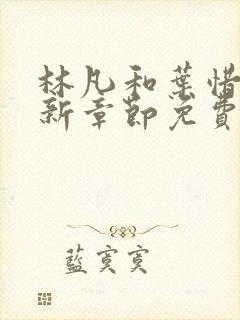 林凡和葉惜
新章節免費
藍寞寞